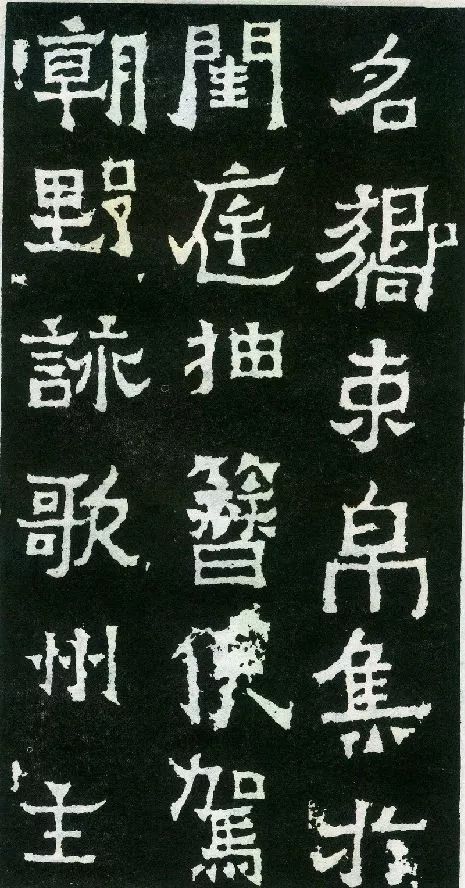 名嚮束帛集於
閨庭抽簪駕
朝野詠歌州主